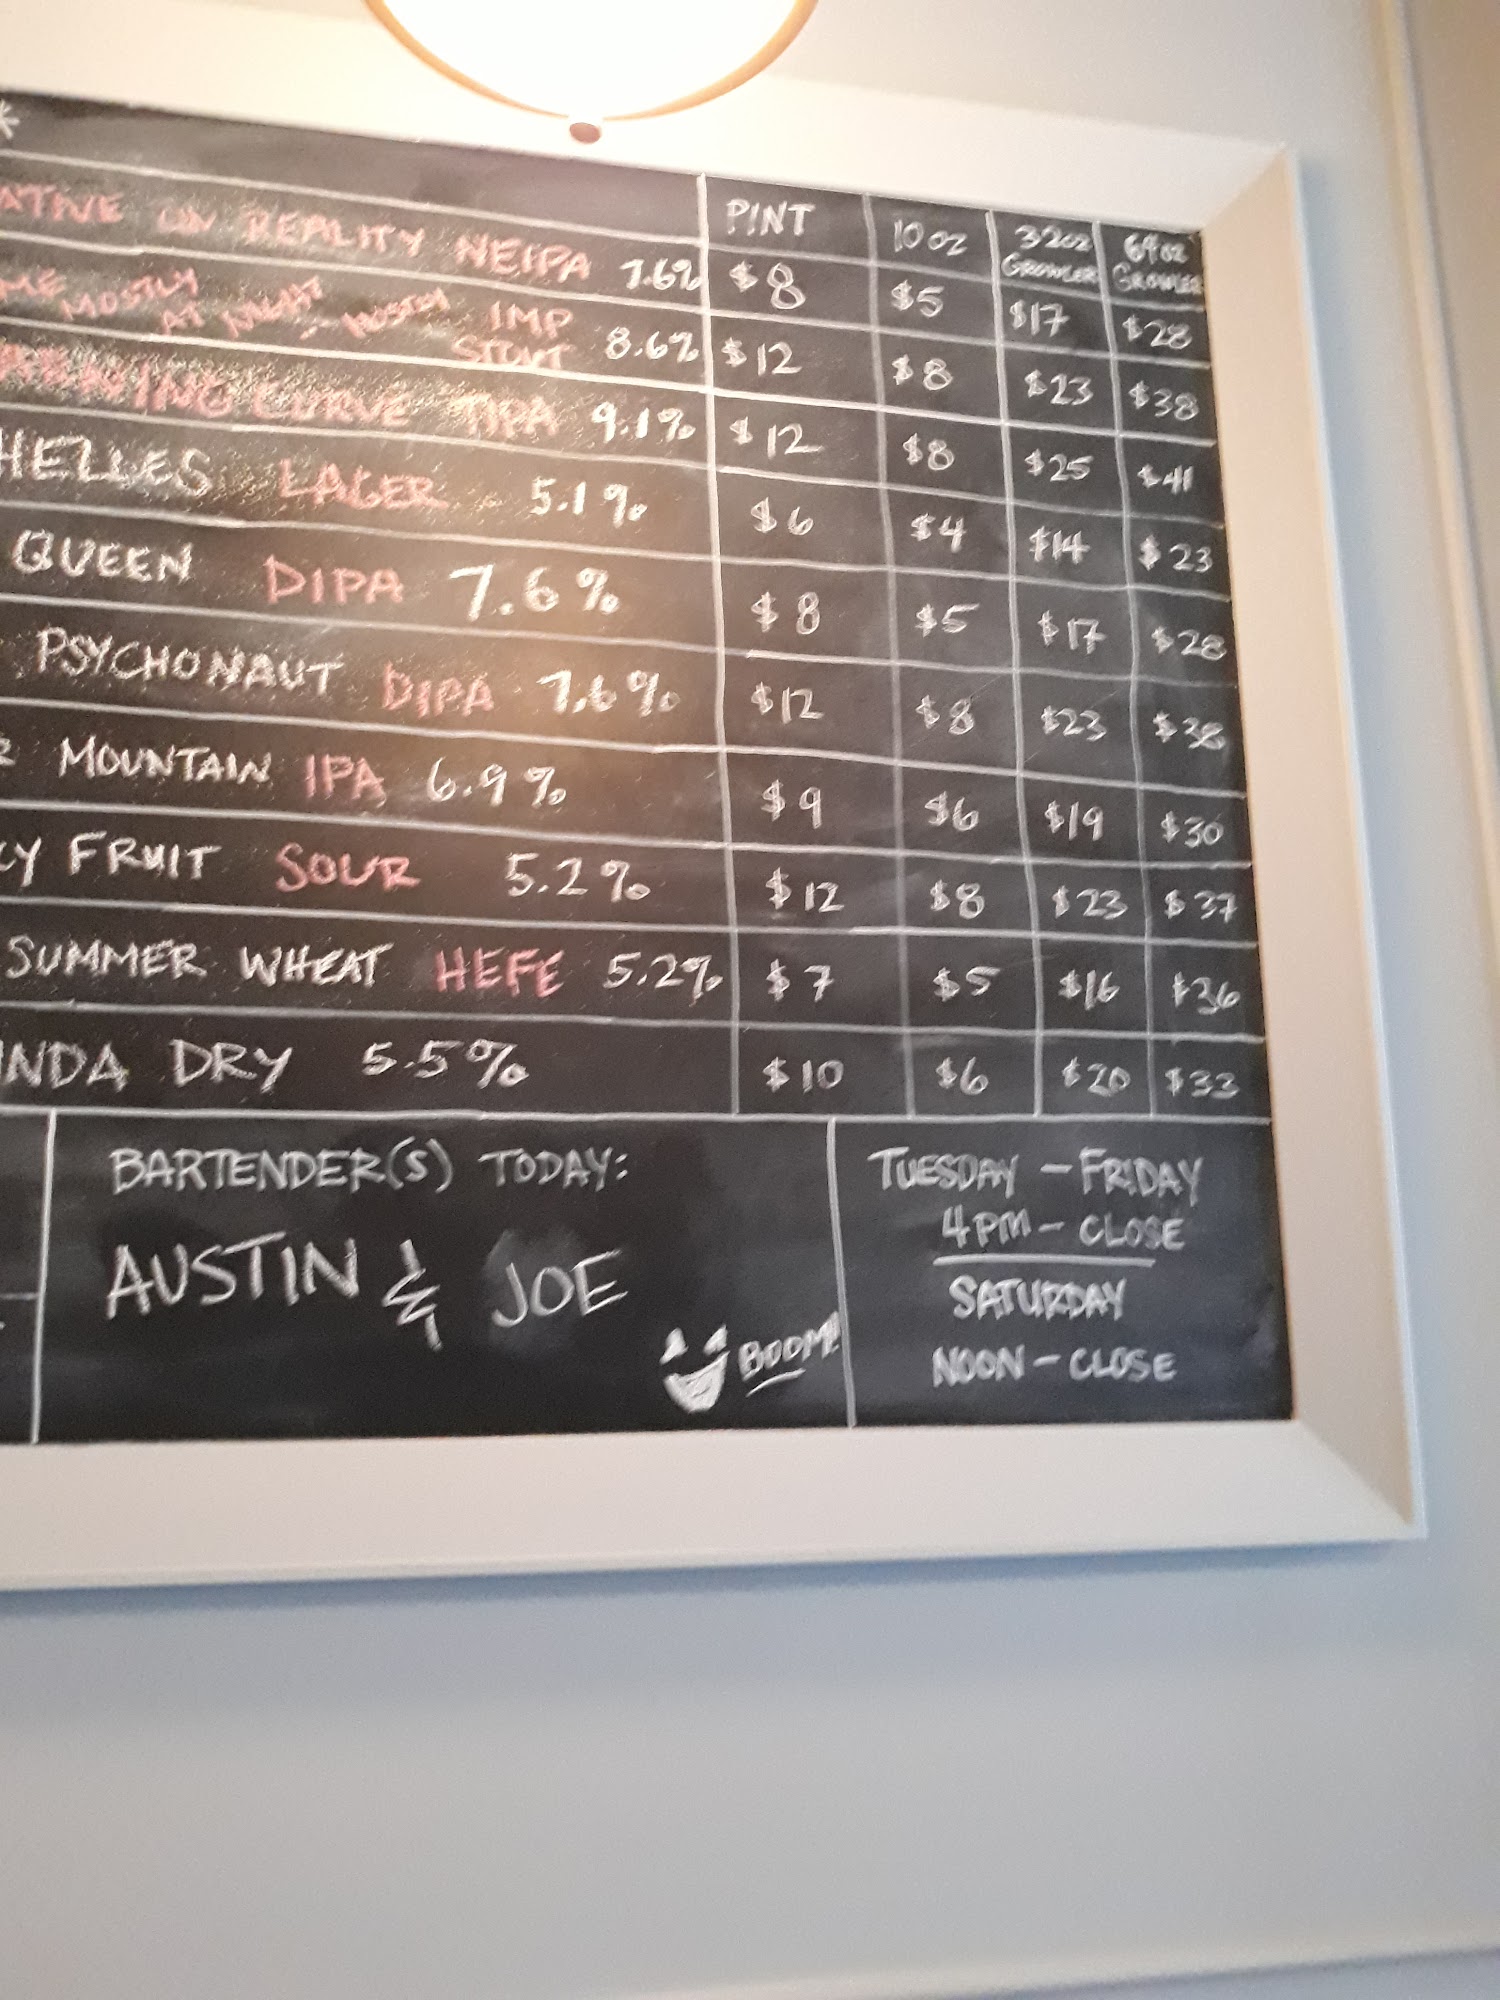 *
PINT 10 oz 32oz GROWLER 64oz GROWLER
ON REALITY NEIPA 7.6% $8 $5 $17 $28
MOSTLY AT NIGHT, MOSTLY IMP STOUT 8.6% $12 $8 $23 $38
CURVE TIPA 9.1% $12 $8 $25 $41
HELLES LAGER 5.1% $6 $4 $14 $23
QUEEN DIPA 7.6% $8 $5 $17 $28
PSYCHONAUT DIPA 7.6% $12 $8 $23 $38
MOUNTAIN IPA 6.9% $9 $6 $19 $30
CY FRUIT SOUR 5.2% $12 $8 $23 $37
SUMMER WHEAT HEFE 5.2% $7 $5 $16 $36
NDA DRY 5.5% $10 $6 $20 $33
BARTENDER(S) TODAY:
AUSTIN & JOE
BOOM!
TUESDAY - FRIDAY
4PM - CLOSE
SATURDAY
NOON - CLOSE